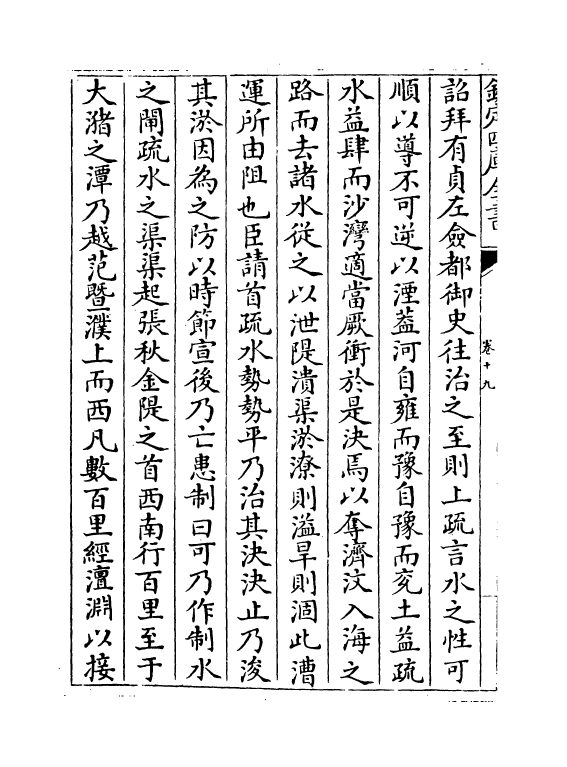 欽定四庫全書
卷十九
詔拜有貞左僉都御史往治之至則上疏言水之性可
順以導不可逆以湮葢河自雍而豫自豫而兖土益疏
水益肆而沙灣適當厥衝於是決焉以奪濟汶入海之
路而去諸水從之以泄隄潰渠淤潦則溢旱則涸此漕
運所由阻也臣請首疏水勢勢平乃治其決決止乃浚
其淤因為之防以時節宣後乃亡患制曰可乃作制水
之閘疏水之渠渠起張秋金隄之首西南行百里至于
大瀦之潭乃越范暨濮上而西凡數百里經澶淵以接